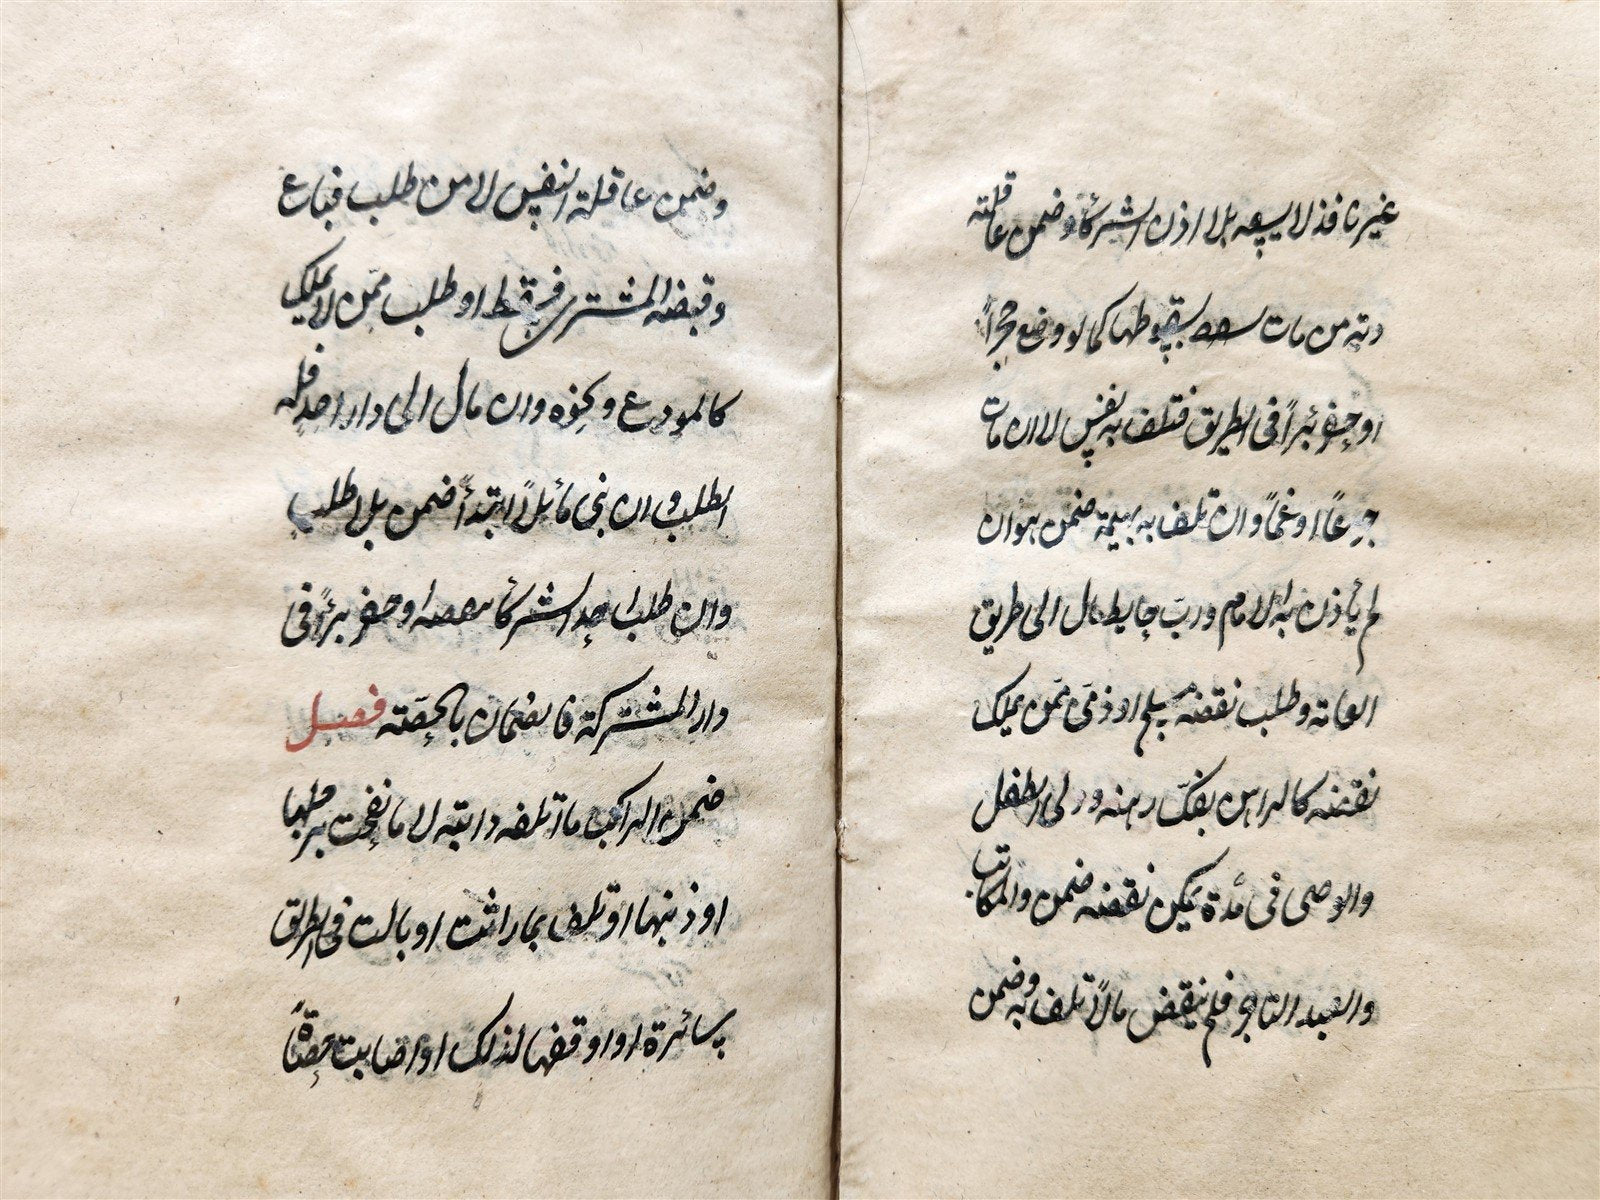 غير نافذ لا يسعه بلا اذن الشركأ وضمن عاقلته
دية من مات بسقوطها كما لو وضع حجراً
او حفر بئراً فى الطريق فتلف به نفس لا ان مات
جوعاً او غماً وان تلف به بهيمة ضمن هو ان
لم يأذن به الامام ورب حايط مال الى طريق
العامة وطلب نقضه مسلم او ذمى ممن يملك
نقضه كالراهن بفك رهنه وولى الطفل
والوصى فى مدة يمكن نقضه ضمن والمكاتب
والعبد التاجر فلم ينقض مالاً تلف به وضمن
وضمن عاقلة النفس لا من طلب فباع
وقبضه المشترى فسقط او طلب ممن لا يملك
كالمودع ونحوه وان مال الى دار احد فله
الطلب وان بنى مائلاً ابتدأ ضمن بلا طلب
وان طلب احد الشركأ او حفر بئراً فى
دار المشتركة فالضمان بالحصّته فصل
ضمن الراكب ما اتلفه دابته لا ما نفحت برجلها
او ذنبها او تلف بما راثت او بالت فى الطريق
سائرة او اوقفها لذلك او اصابت حصاةً